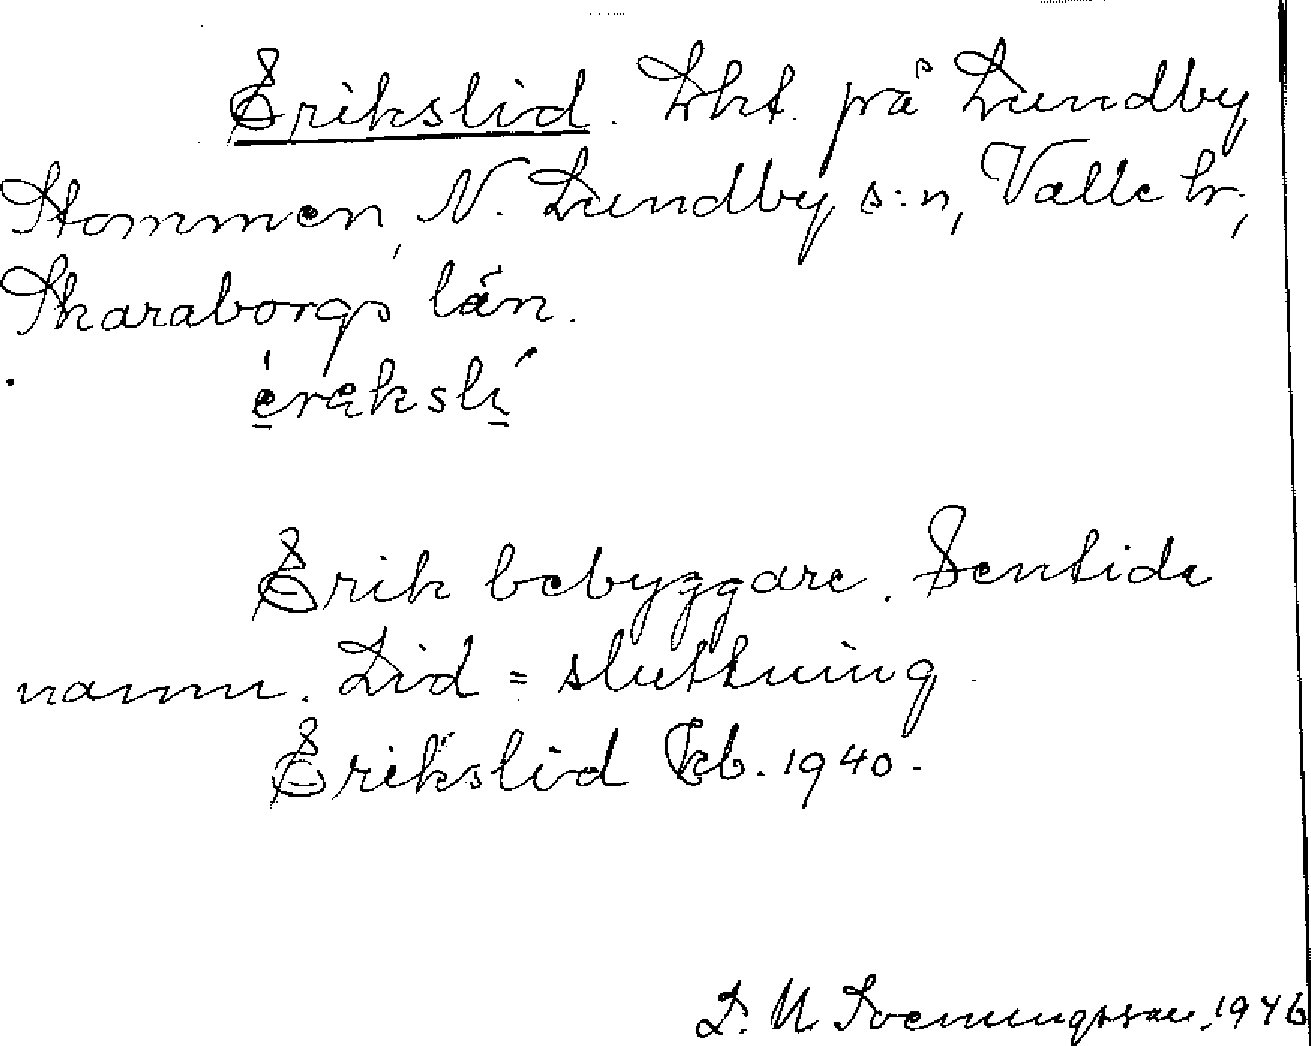 Erikslid. Lht. på Lundby
Stommen, N. Lundby s:n, Valle hr,
Skaraborgs län.
erəkslí
Erik bebyggare. Sentida
namn. Lid = sluttning.
Erikslid Ekb. 1940.
D. U. 1946